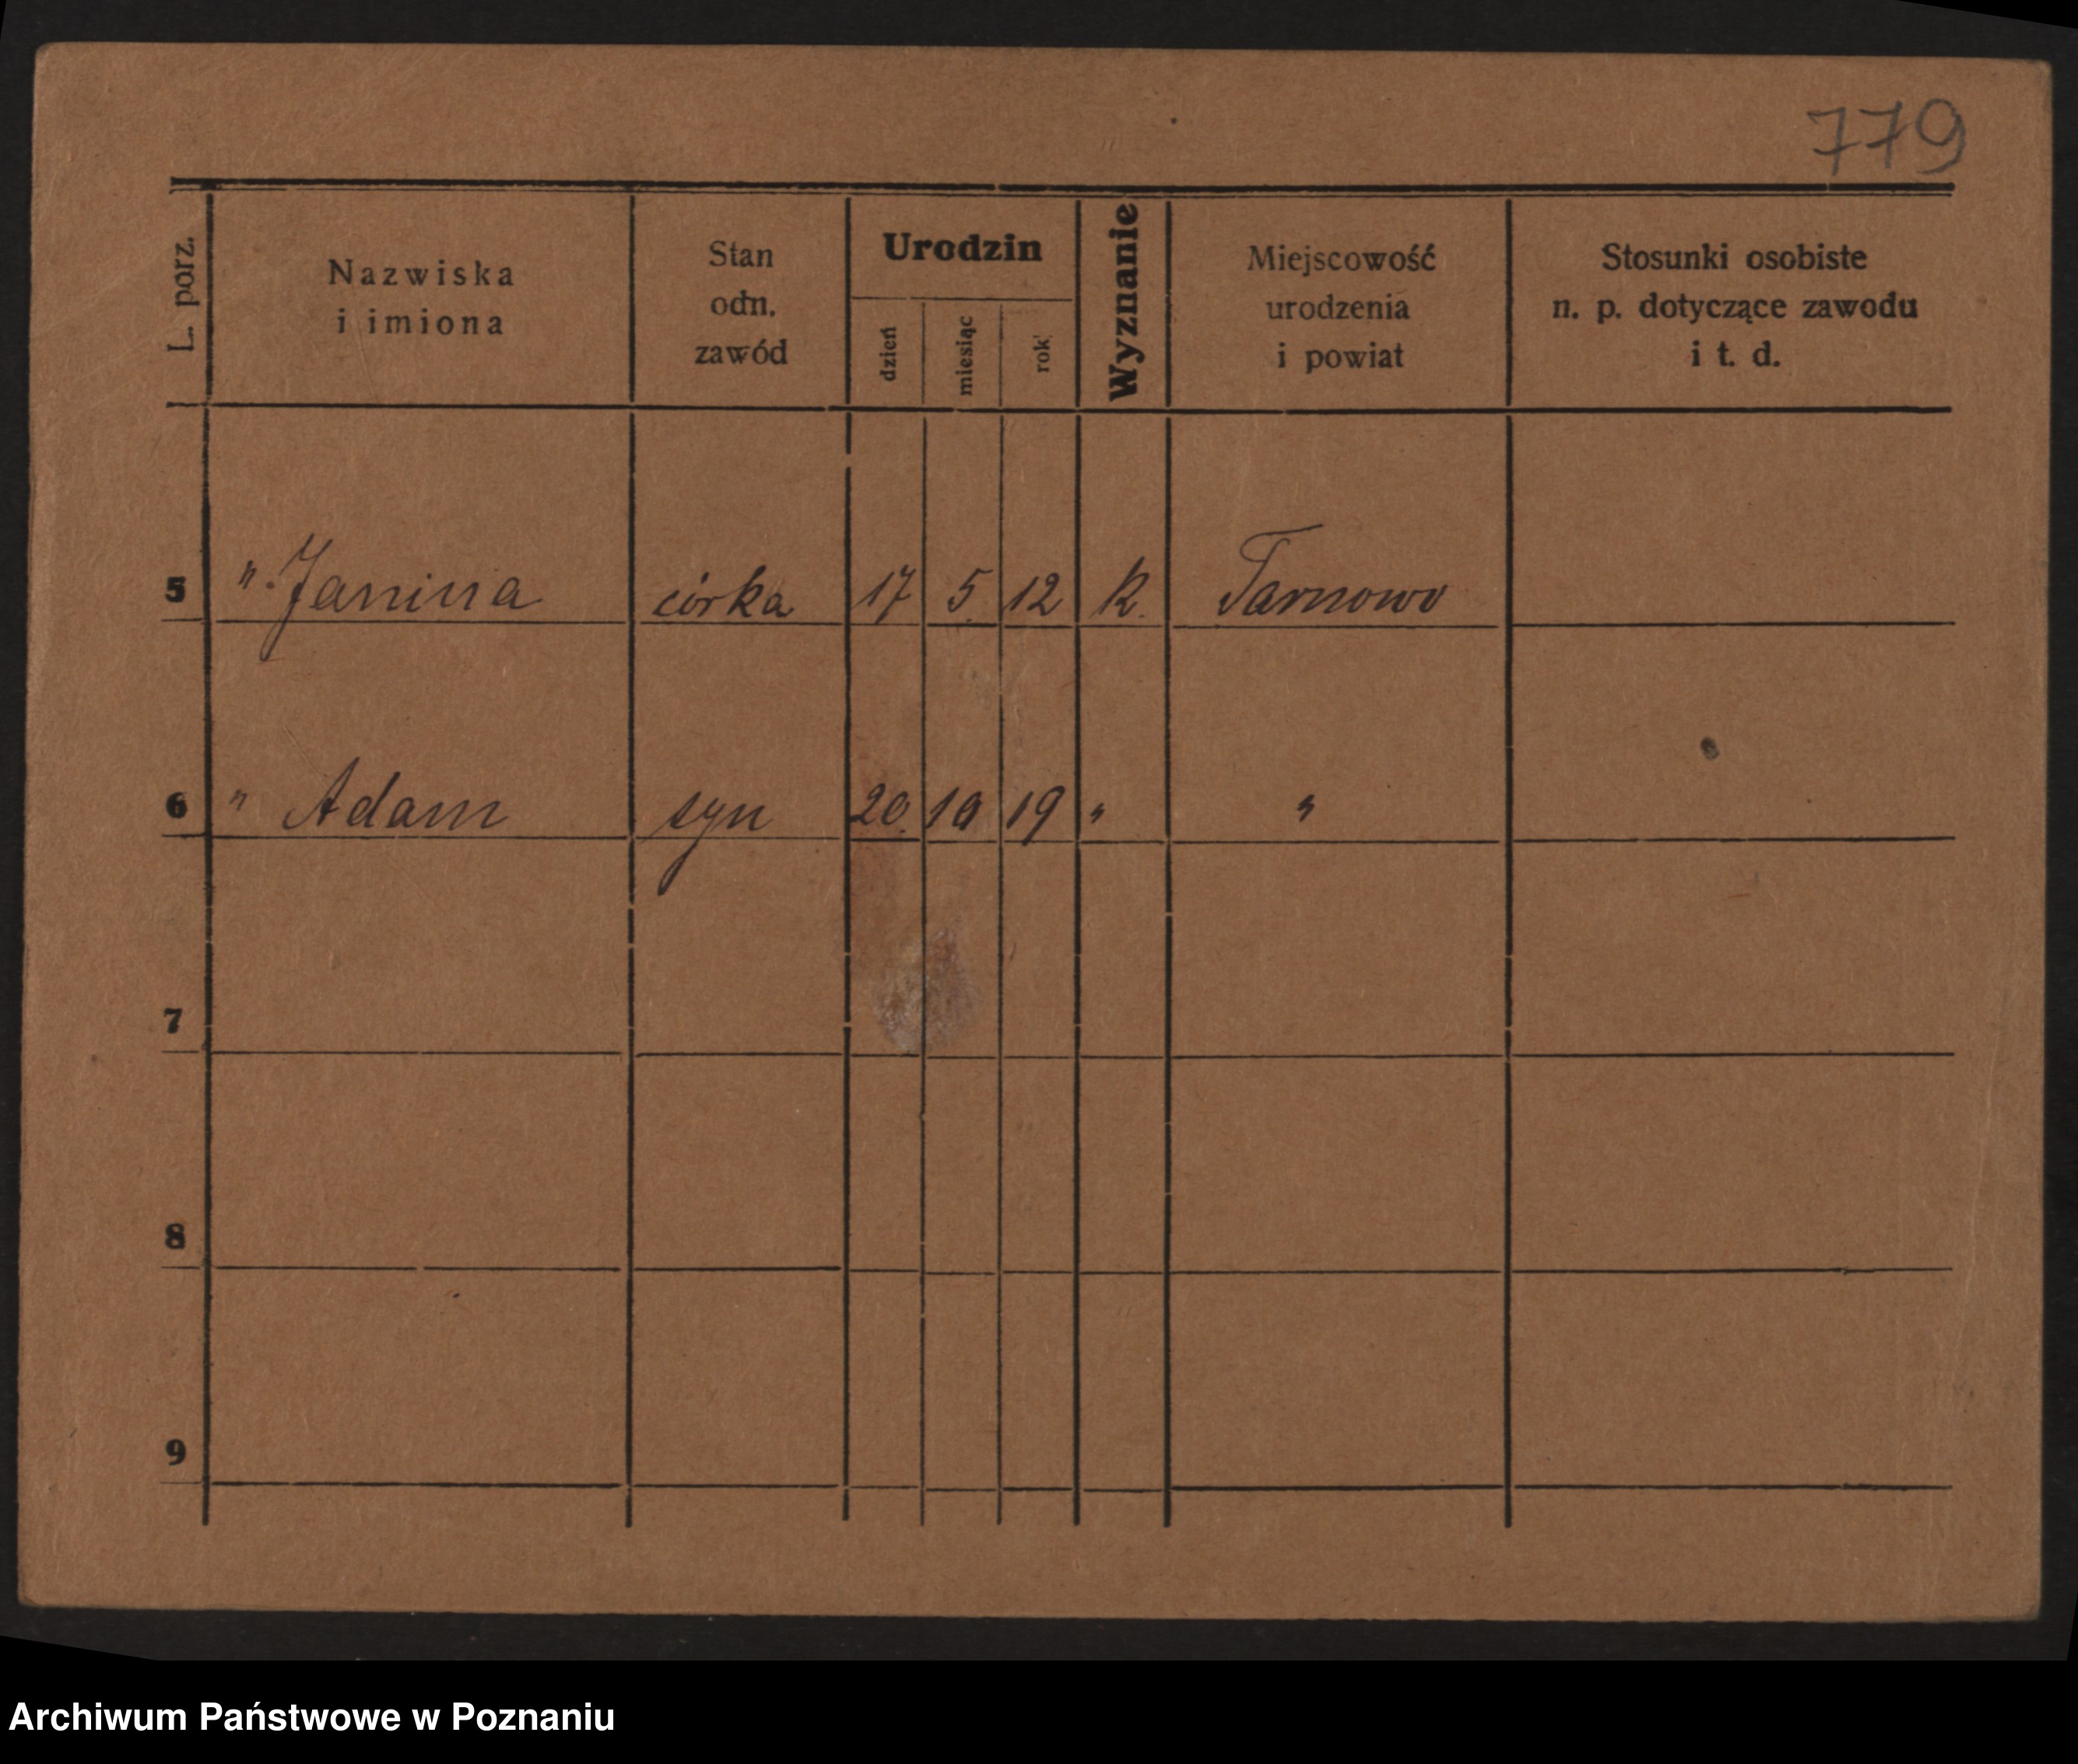 779
L. porz.
Nazwiska
i imiona
Stan
odn.
zawód
Urodzin
dzień
miesiąc
rok
Wyznanie
Miejscowość
urodzenia
i powiat
Stosunki osobiste
n. p. dotyczące zawodu
i t. d.
5 " Janina córka 17 5. 12 k. Tarnowo
6 " Adam syn 20. 10 19 " "
7
8
9
Archiwum Państwowe w Poznaniu